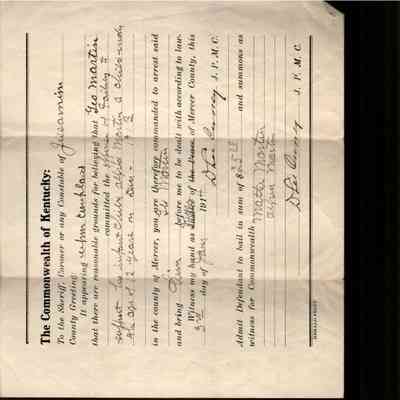 The Commonwealth of Kentucky:
To the Sheriff, Coroner or any Constable of Jessamin
County Greeting:
It appearing upon complaint
that there are reasonable grounds for believing that Geo Martin
committed the offense of Failing to
support his infant child Martin a child under
the age of 12 years
in the county of Mercer, you are therefore commanded to arrest said
Geo Martin
and bring him before me to be dealt with according to law.
Witness my hand as of Mercer County, this
3rd day of Jany 191
J. P. M. C.
Admit Defendant to bail in sum of $25.00 and summons as
witness for Commonwealth Martin
Martin
J. P. M. C.
HERALD PRINT